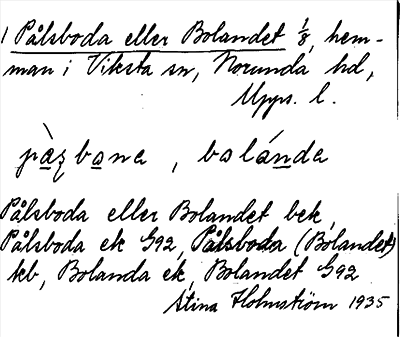 1 Pålsboda eller Bolandet 1/8, hem-
man i Viksta sn, Norunda hd,
Upps. l.
pàʒbona, bolánda
Pålsboda eller Bolandet bek,
Pålsboda ek G92, Pålsboda (Bolandet)
kb, Bolanda ek, Bolandet G92
Stina Holmström 1935